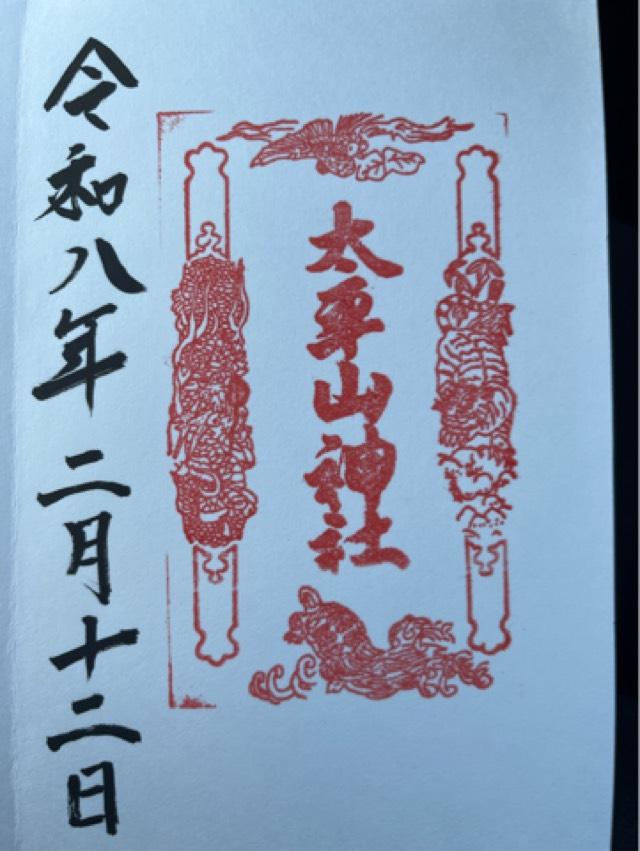 太平山神社
令和八年二月十二日